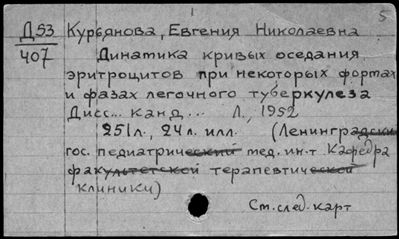 5
Д53 Курьянова, Евгения Николаевна
407 Динамика кривых оседания
эритроцитов при некоторых формах
и фазах легочного туберкулеза
Дисс... канд... Л., 1952
251 л., 24 л. илл. (Ленинградский
гос. педиатрический мед. ин-т Кафедра
факультетской терапевтической
клиники)
См. след. карт